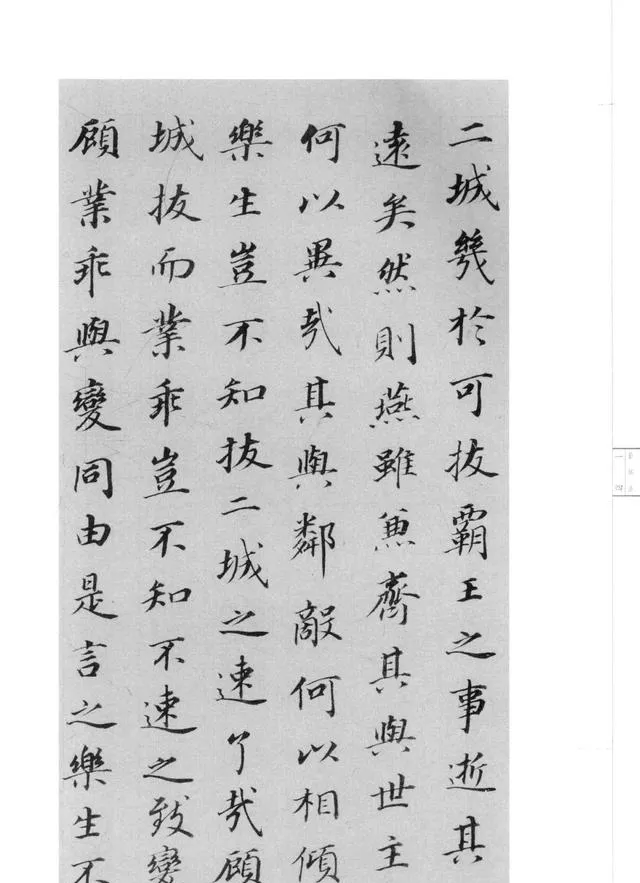 二城幾於可拔霸王之事逝其
遠矣然則燕雖兼齊其與世主
何以異哉其與鄰敵何以相傾
樂生豈不知拔二城之速了哉顧
城拔而業乖豈不知不速之致變
顧業乖與變同由是言之樂生不